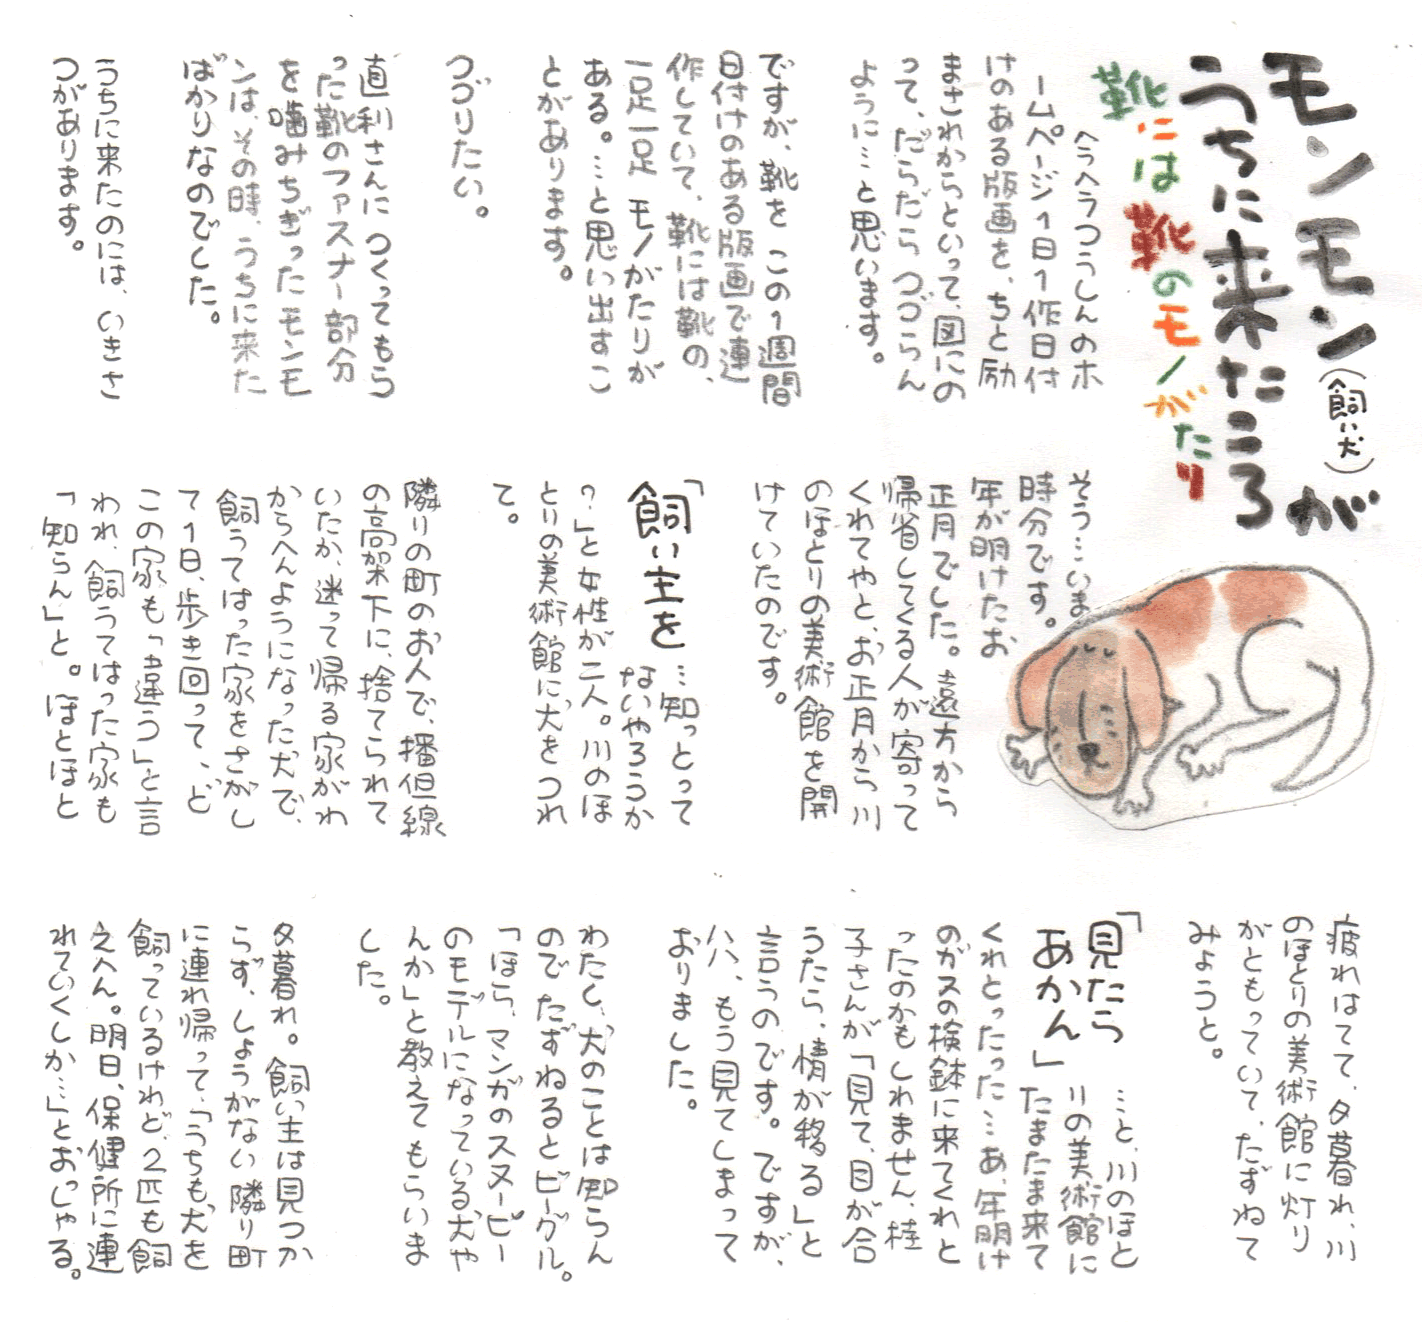 モンモン(飼い犬)が
うちに来たころ
靴には靴のモノがたり
へらへらつうしんのホ
ームページ1日1作日付
けのある版画を、ちと励
まされからといって、図にの
って、だらだら つづらん
ように…と思います。
ですが、靴を この1週間
日付けのある版画で連
作していて、靴には靴の、
一足一足 モノがたりが
ある。…と思い出すこ
とがあります。
つづりたい。
直利さんに つくってもら
った靴のファスナー部分
を 噛みちぎったモンモ
ンは、その時、うちに来た
ばかりなのでした。
うちに来たのには、いきさ
つがあります。
そう…いま
時分です。
年が明けたお
正月でした。遠方から
帰省してくる人が寄って
くれてやと、お正月から川
のほとりの美術館を開
けていたのです。
「飼い主を…知っとって
ないやろうか
?」と女性が二人。川のほ
とりの美術館に、犬をつれ
て。
隣りの町のお人で、播但線
の高架下に、捨てられて
いたか、迷って帰る家がわ
からへんようになった犬で、
飼うてはった家をさがし
て1日、歩き回って、ど
この家も「違う」と言
われ、飼うてはった家も
「知らん」と。ほとほと
疲れはてて、夕暮れ、川
のほとりの美術館に灯り
がともっていて、たずねて
みようと。
「見たら
あかん」
…と、川のほと
リの美術館に
たまたま来て
くれとったった…あ、年明け
のガスの検針に来てくれと
ったのかもしれません、桂
子さんが「見て、目が合
うたら、情が移る」と
言うのです。ですが、
ハハ、もう見てしまって
おりました。
わたし、犬のことは知らん
ので たずねるとビーグル。
「ほら、マンガのスヌーピー
のモデルになっている犬や
んか」と教えて もらいま
した。
夕暮れ。飼い主は見つか
らず、しょうがない 隣り町
に連れ帰って、「うちも、犬を
飼っているけれど、2匹も飼
えへん。明日、保健所に連
れていくしか…」とおっしゃる。